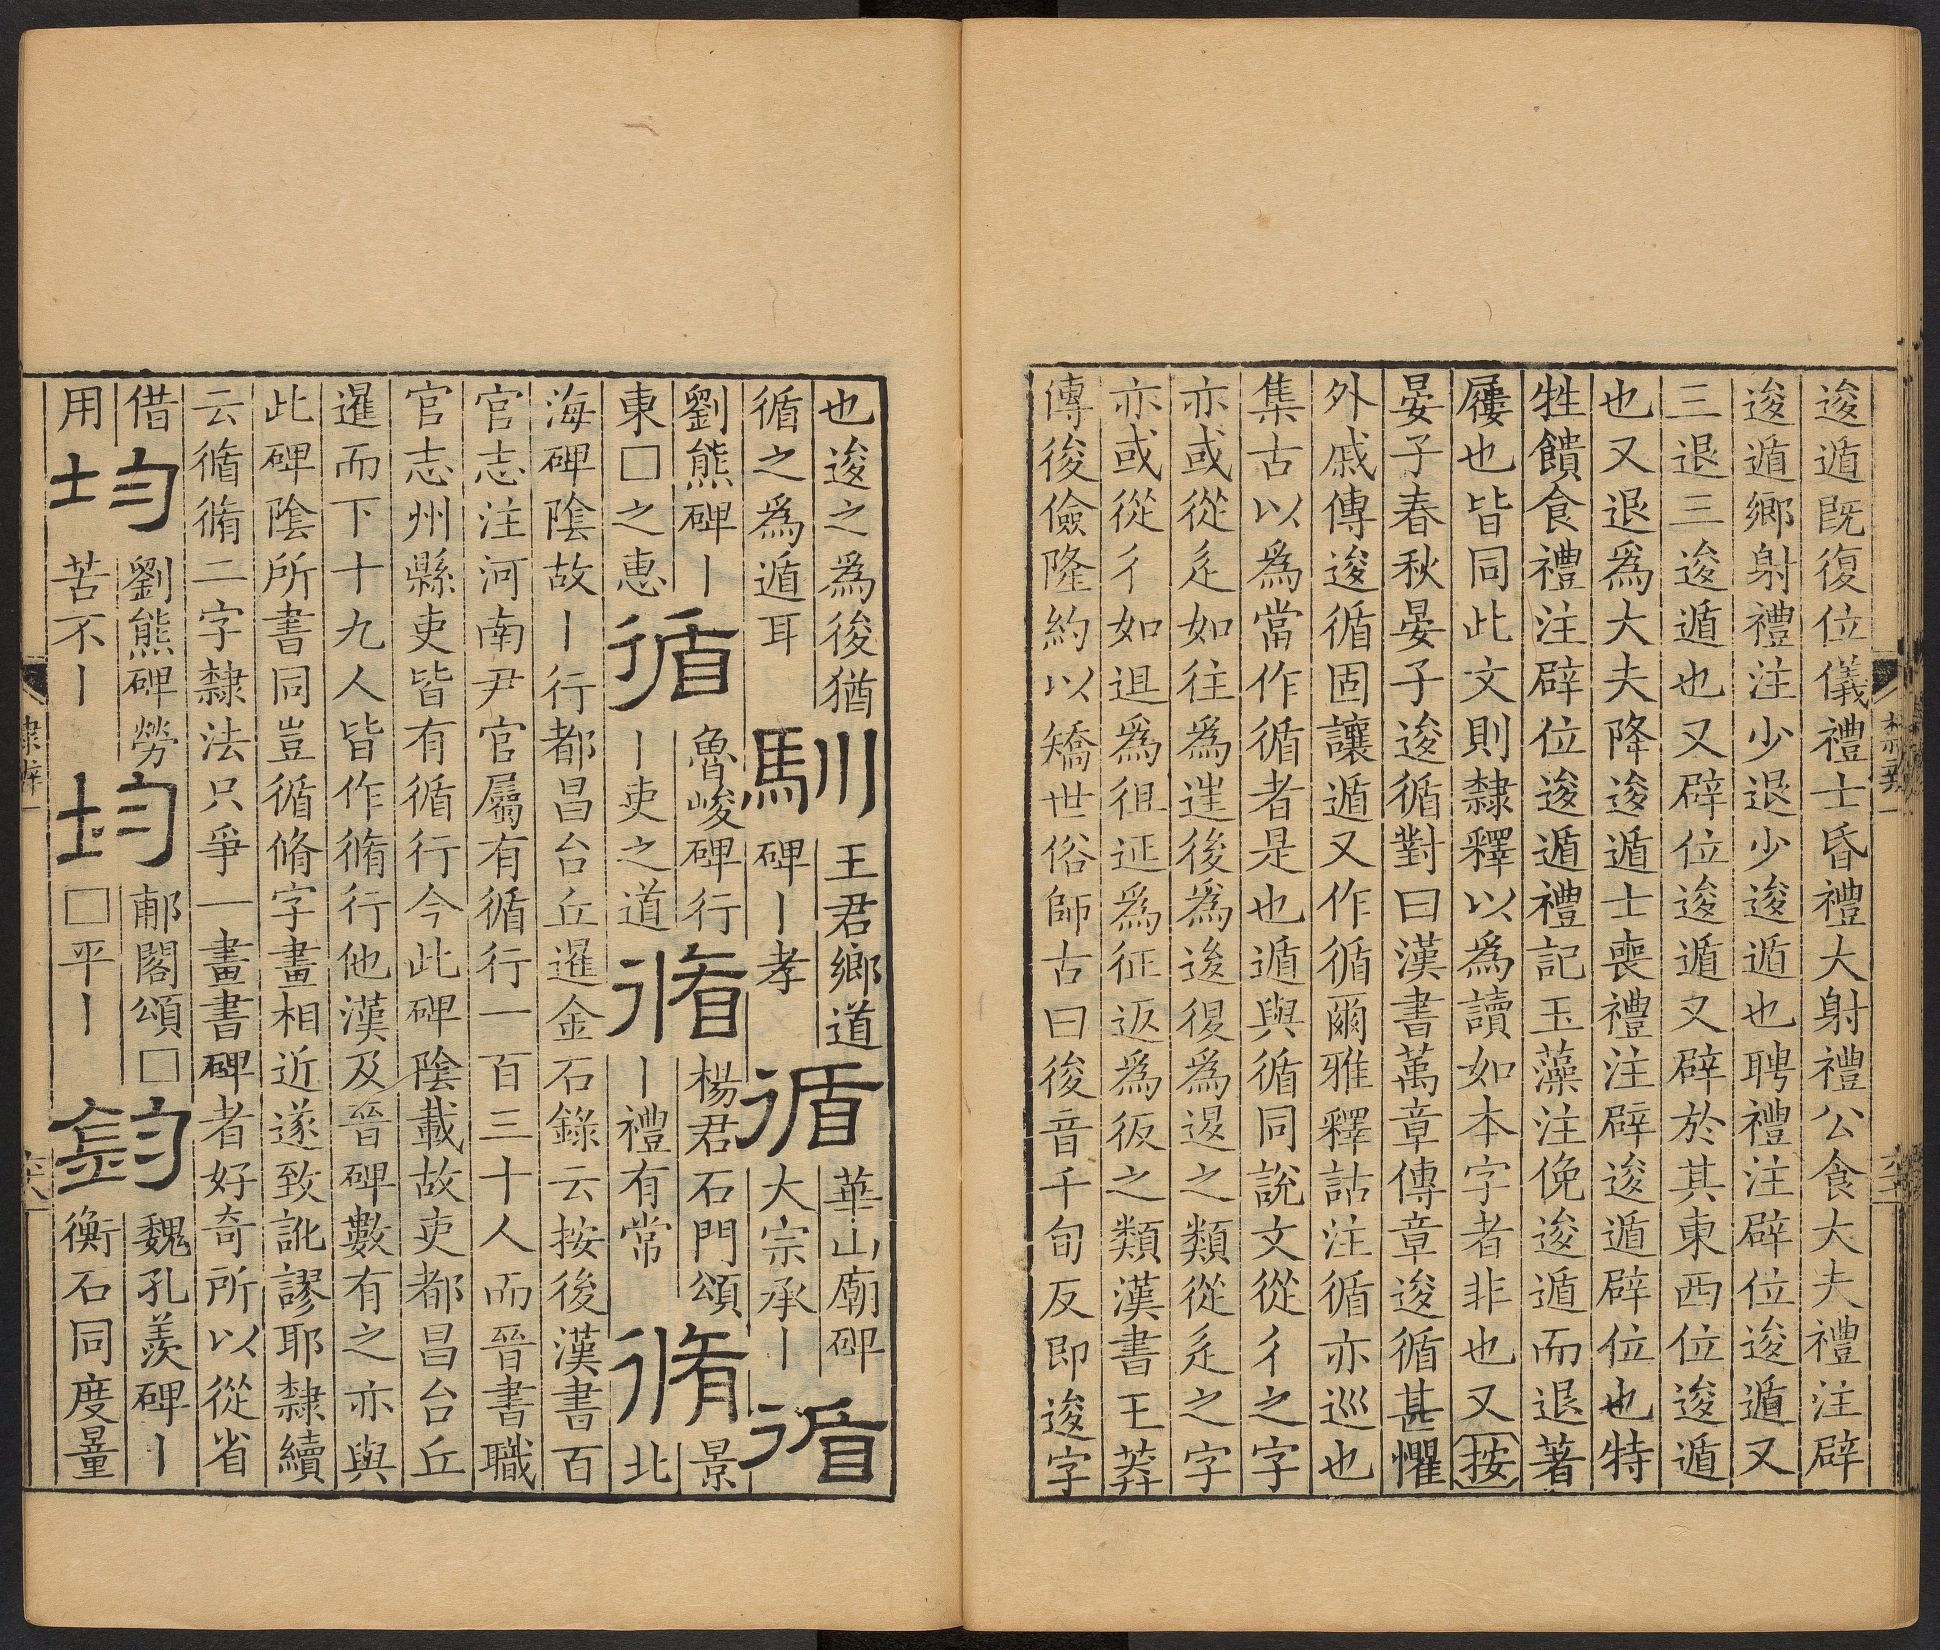 逡遁既復位儀禮士昏禮大射禮公食大夫禮注辟
逡遁鄉射禮注少退少逡遁也聘禮注辟位逡遁又
三退三逡遁也又辟位逡遁又辟於其東西位逡遁
也又退爲大夫降逡遁士喪禮注辟逡遁辟位也特
牲饋食禮注辟位逡遁禮記玉藻注俛逡遁而退著
屨也皆同此文則隸釋以爲讀如本字者非也又按
晏子春秋晏子逡循對曰漢書萬章傳章逡循甚懼
外戚傳逡循固讓遁又作循爾雅釋詁注循亦巡也
集古以爲當作循者是也遁與循同說文從彳之字
亦或從辵如往爲𨓹後爲逡復爲𨓤之類從辵之字
亦或從彳如迌爲徂𨒌爲征返爲彶之類漢書王莽
傳後儉隆約以矯世俗師古曰後音千旬反即逡字
也逡之爲後猶
循之爲遁耳
馴
王君鄉道
碑丨孝
循
華山廟碑
大宗承丨
循
劉熊碑丨
東□之惠
循
魯峻碑行
丨吏之道
循
楊君石門頌
丨禮有常
脩
景
北
海碑陰故丨行都昌台丘暹金石錄云按後漢書百
官志注河南尹官屬有循行一百三十人而晉書職
官志州縣吏皆有循行今此碑陰載故吏都昌台丘
暹而下十九人皆作脩行他漢及晉碑數有之亦與
此碑陰所書同豈循脩字畫相近遂致訛謬耶隸續
云循脩二字隸法只爭一畫書碑者好奇所以從省
借
用
均
劉熊碑勞
苦不丨
均
郙閣頌□
□平丨
鈞
魏孔羨碑丨
衡石同度量